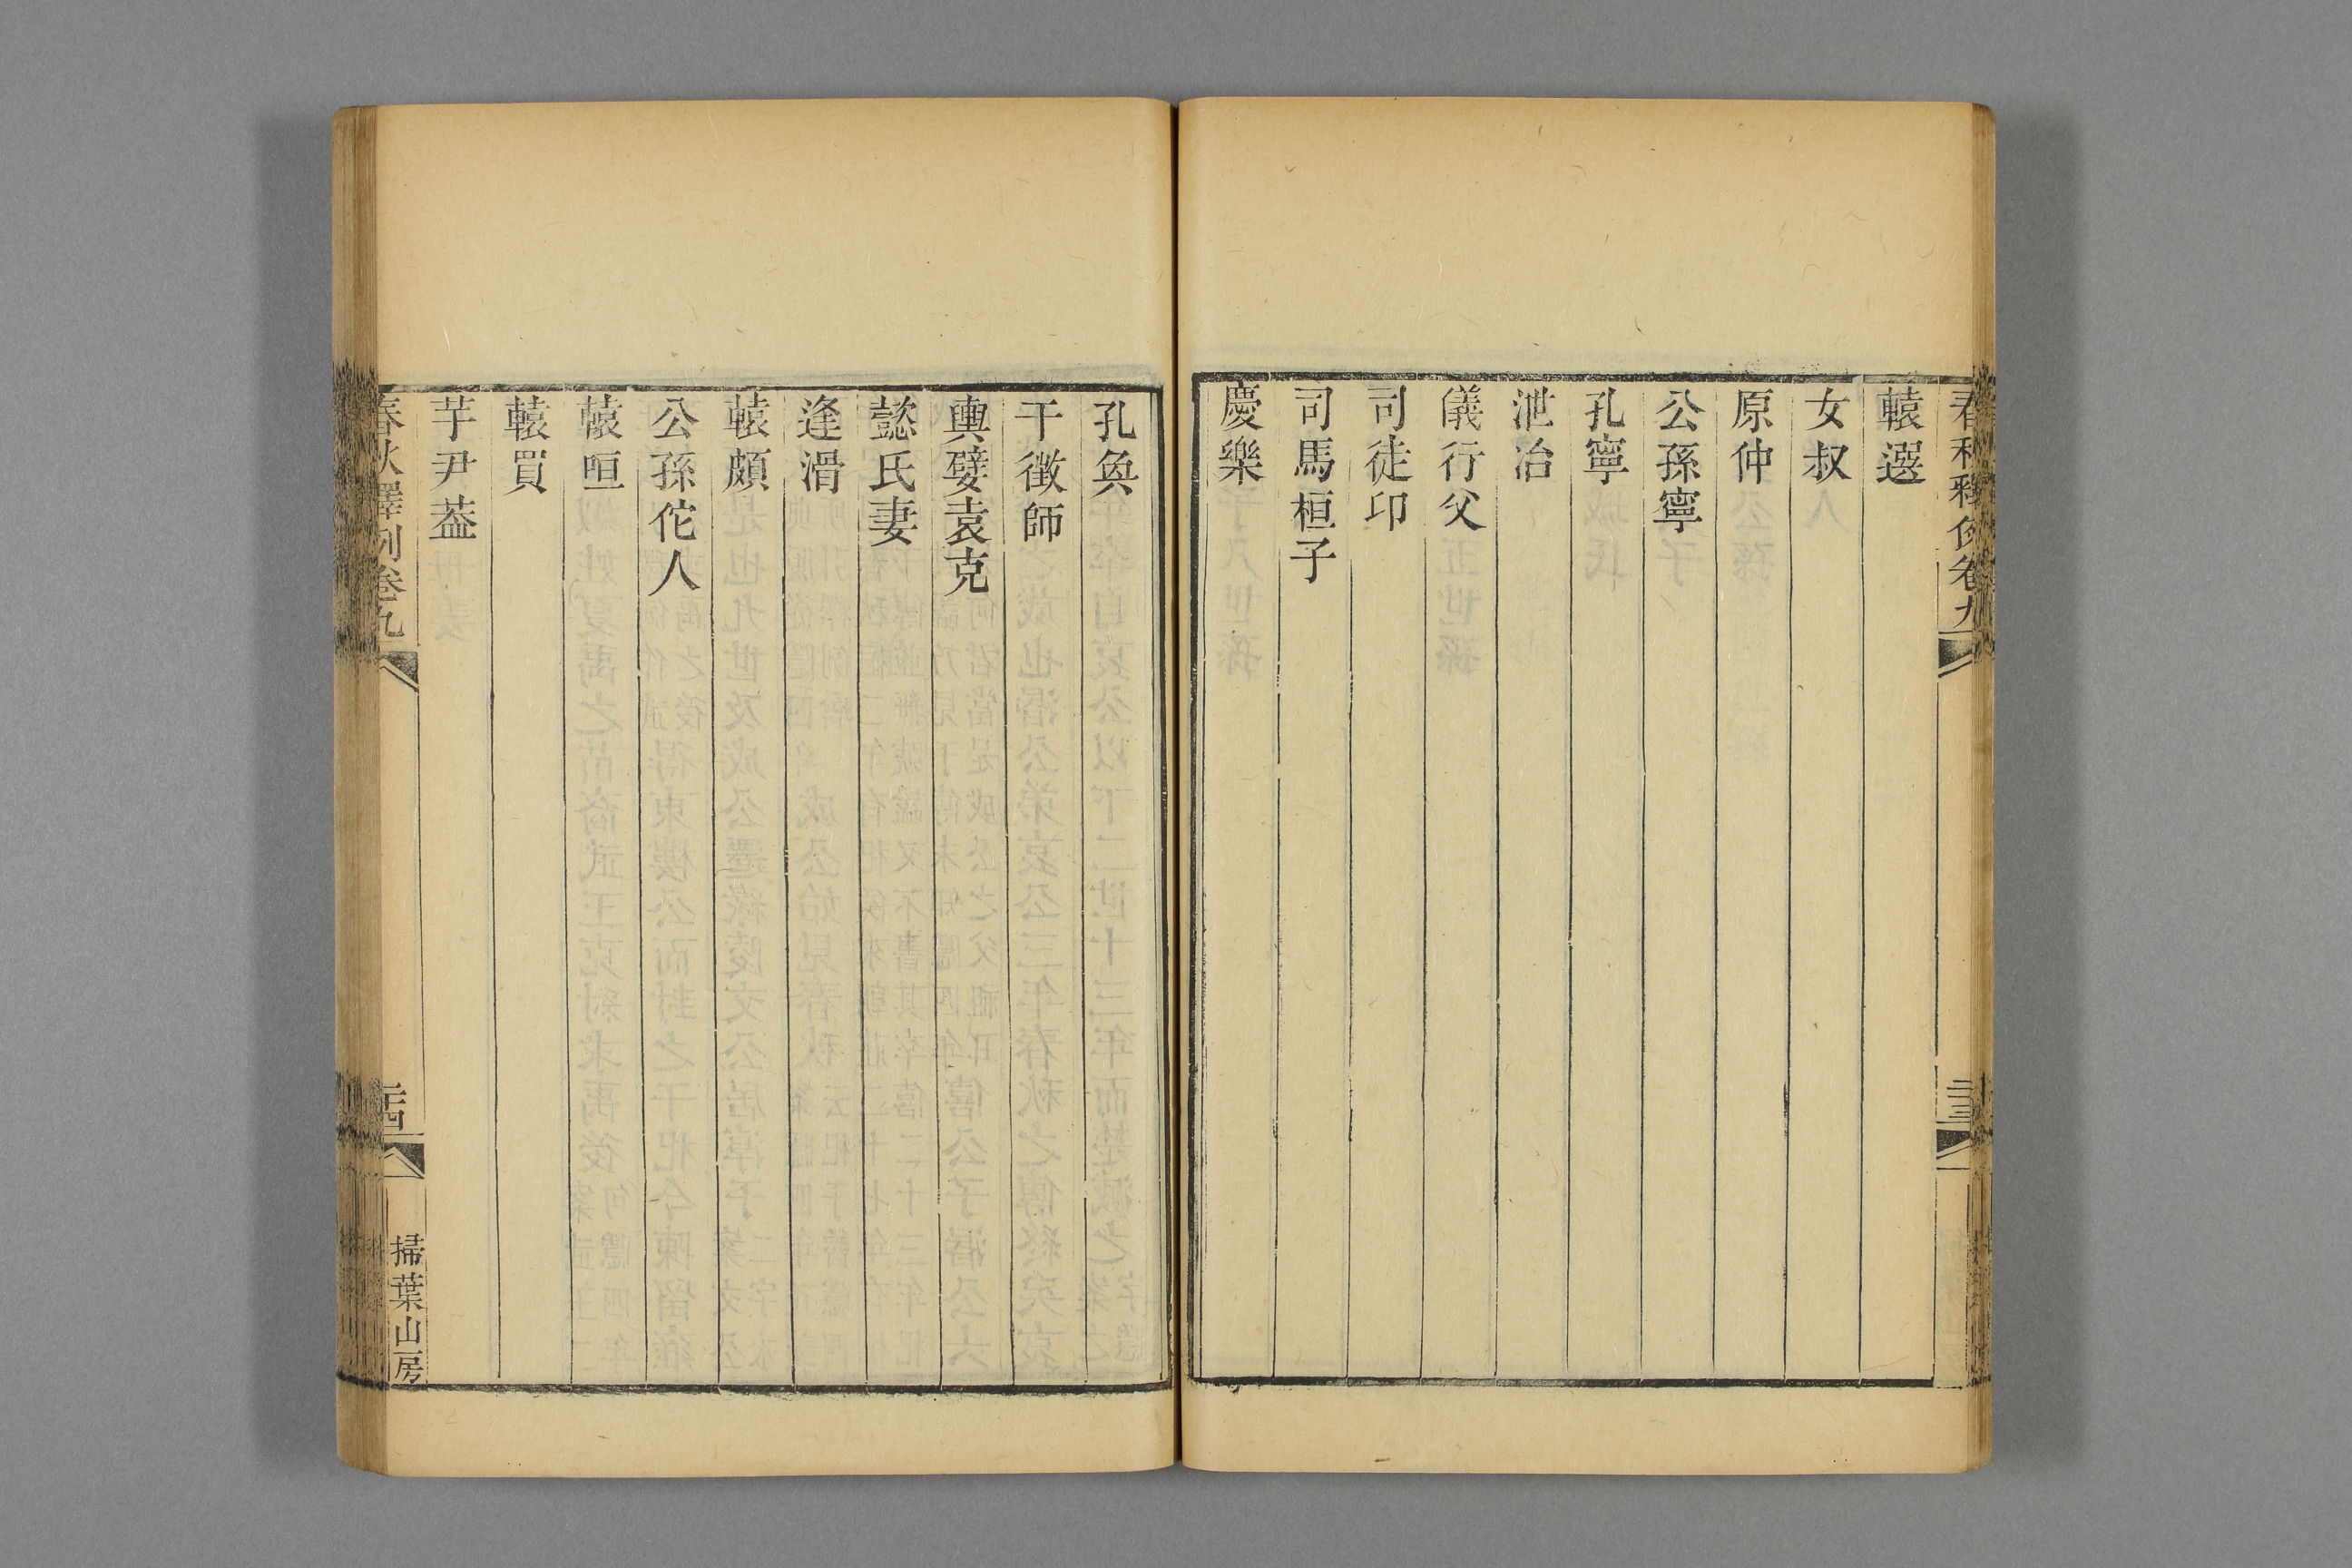 春秋釋例卷九
二十三
轅選
女叔
原仲
公孫寧
孔寧
泄冶
儀行父
司徒卬
司馬桓子
慶樂
孔奐
干徵師
輿嬖袁克
懿氏妻
逢滑
轅頗
公孫佗人
轅咺
轅買
芋尹蓋
春秋釋例卷九
二十四
掃葉山房